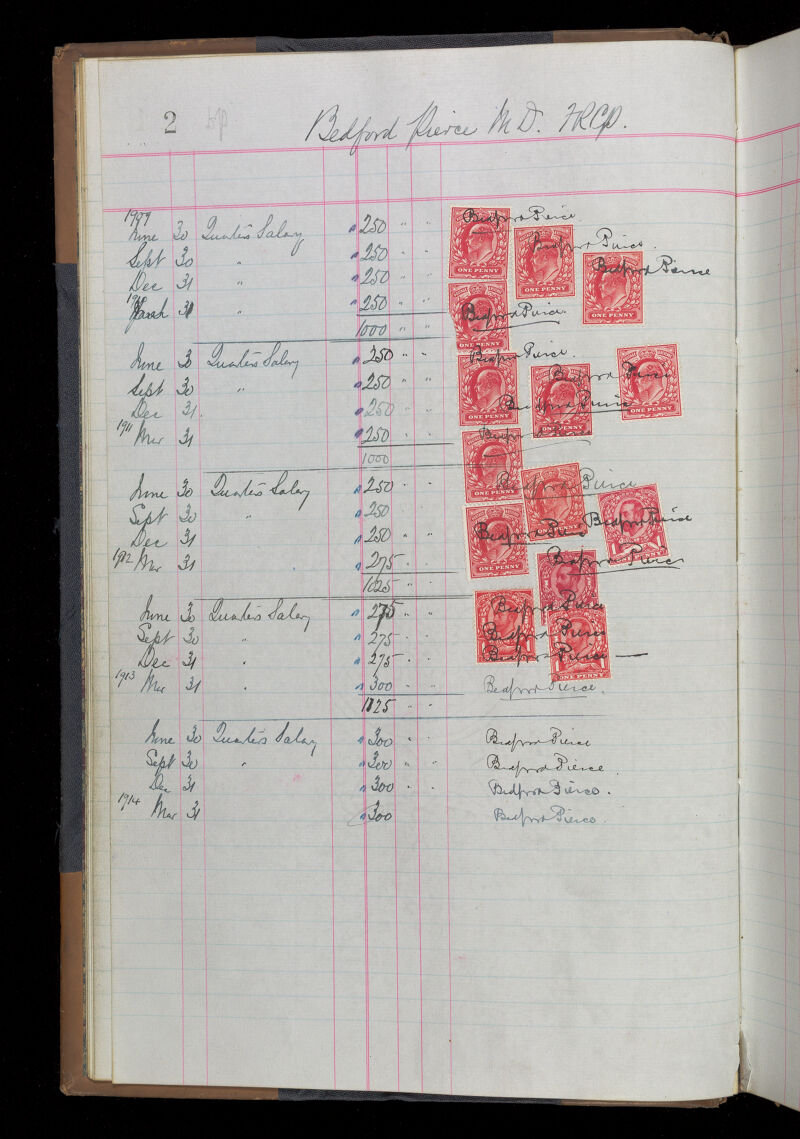 2
Bedford Pierce M.D. FRCP.
1909
June 30 Quarters Salary 250 " " Bedford Pierce
Sept 30 " 250 " " Bedford Pierce
Dec 31 " 250 " " Bedford Pierce
March 31 " 250 " " Bedford Pierce
1000 " "
June 30 Quarters Salary 250 " " Bedford Pierce
Sept 30 " 250 " " Bedford Pierce
Dec 31 250 " " Bedford Pierce
1911 Mar 31 250 " " Bedford Pierce
1000
June 30 Quarters Salary 250 " " Bedford Pierce
Sept 30 " 250 Bedford Pierce
Dec 31 250 " " Bedford Pierce
1912 Mar 31 " 275 " " Bedford Pierce
1025 " "
June 30 Quarters Salary 275 " " Bedford Pierce
Sept 30 " 275 " " Bedford Pierce
Dec 31 " 275 " " Bedford Pierce
1913 Mar 31 " 300 " " Bedford Pierce
1125 " "
June 30 Quarters Salary 300 " " Bedford Pierce
Sept 30 " 300 " " Bedford Pierce
Dec 31 300 " " Bedford Pierce.
1914 Mar 31 300 Bedford Pierce
ONE PENNY
ONE PENNY
ONE PENNY
ONE PENNY
ONE PENNY
ONE PENNY
ONE PENNY
ONE PENNY
ONE PENNY
ONE PENNY